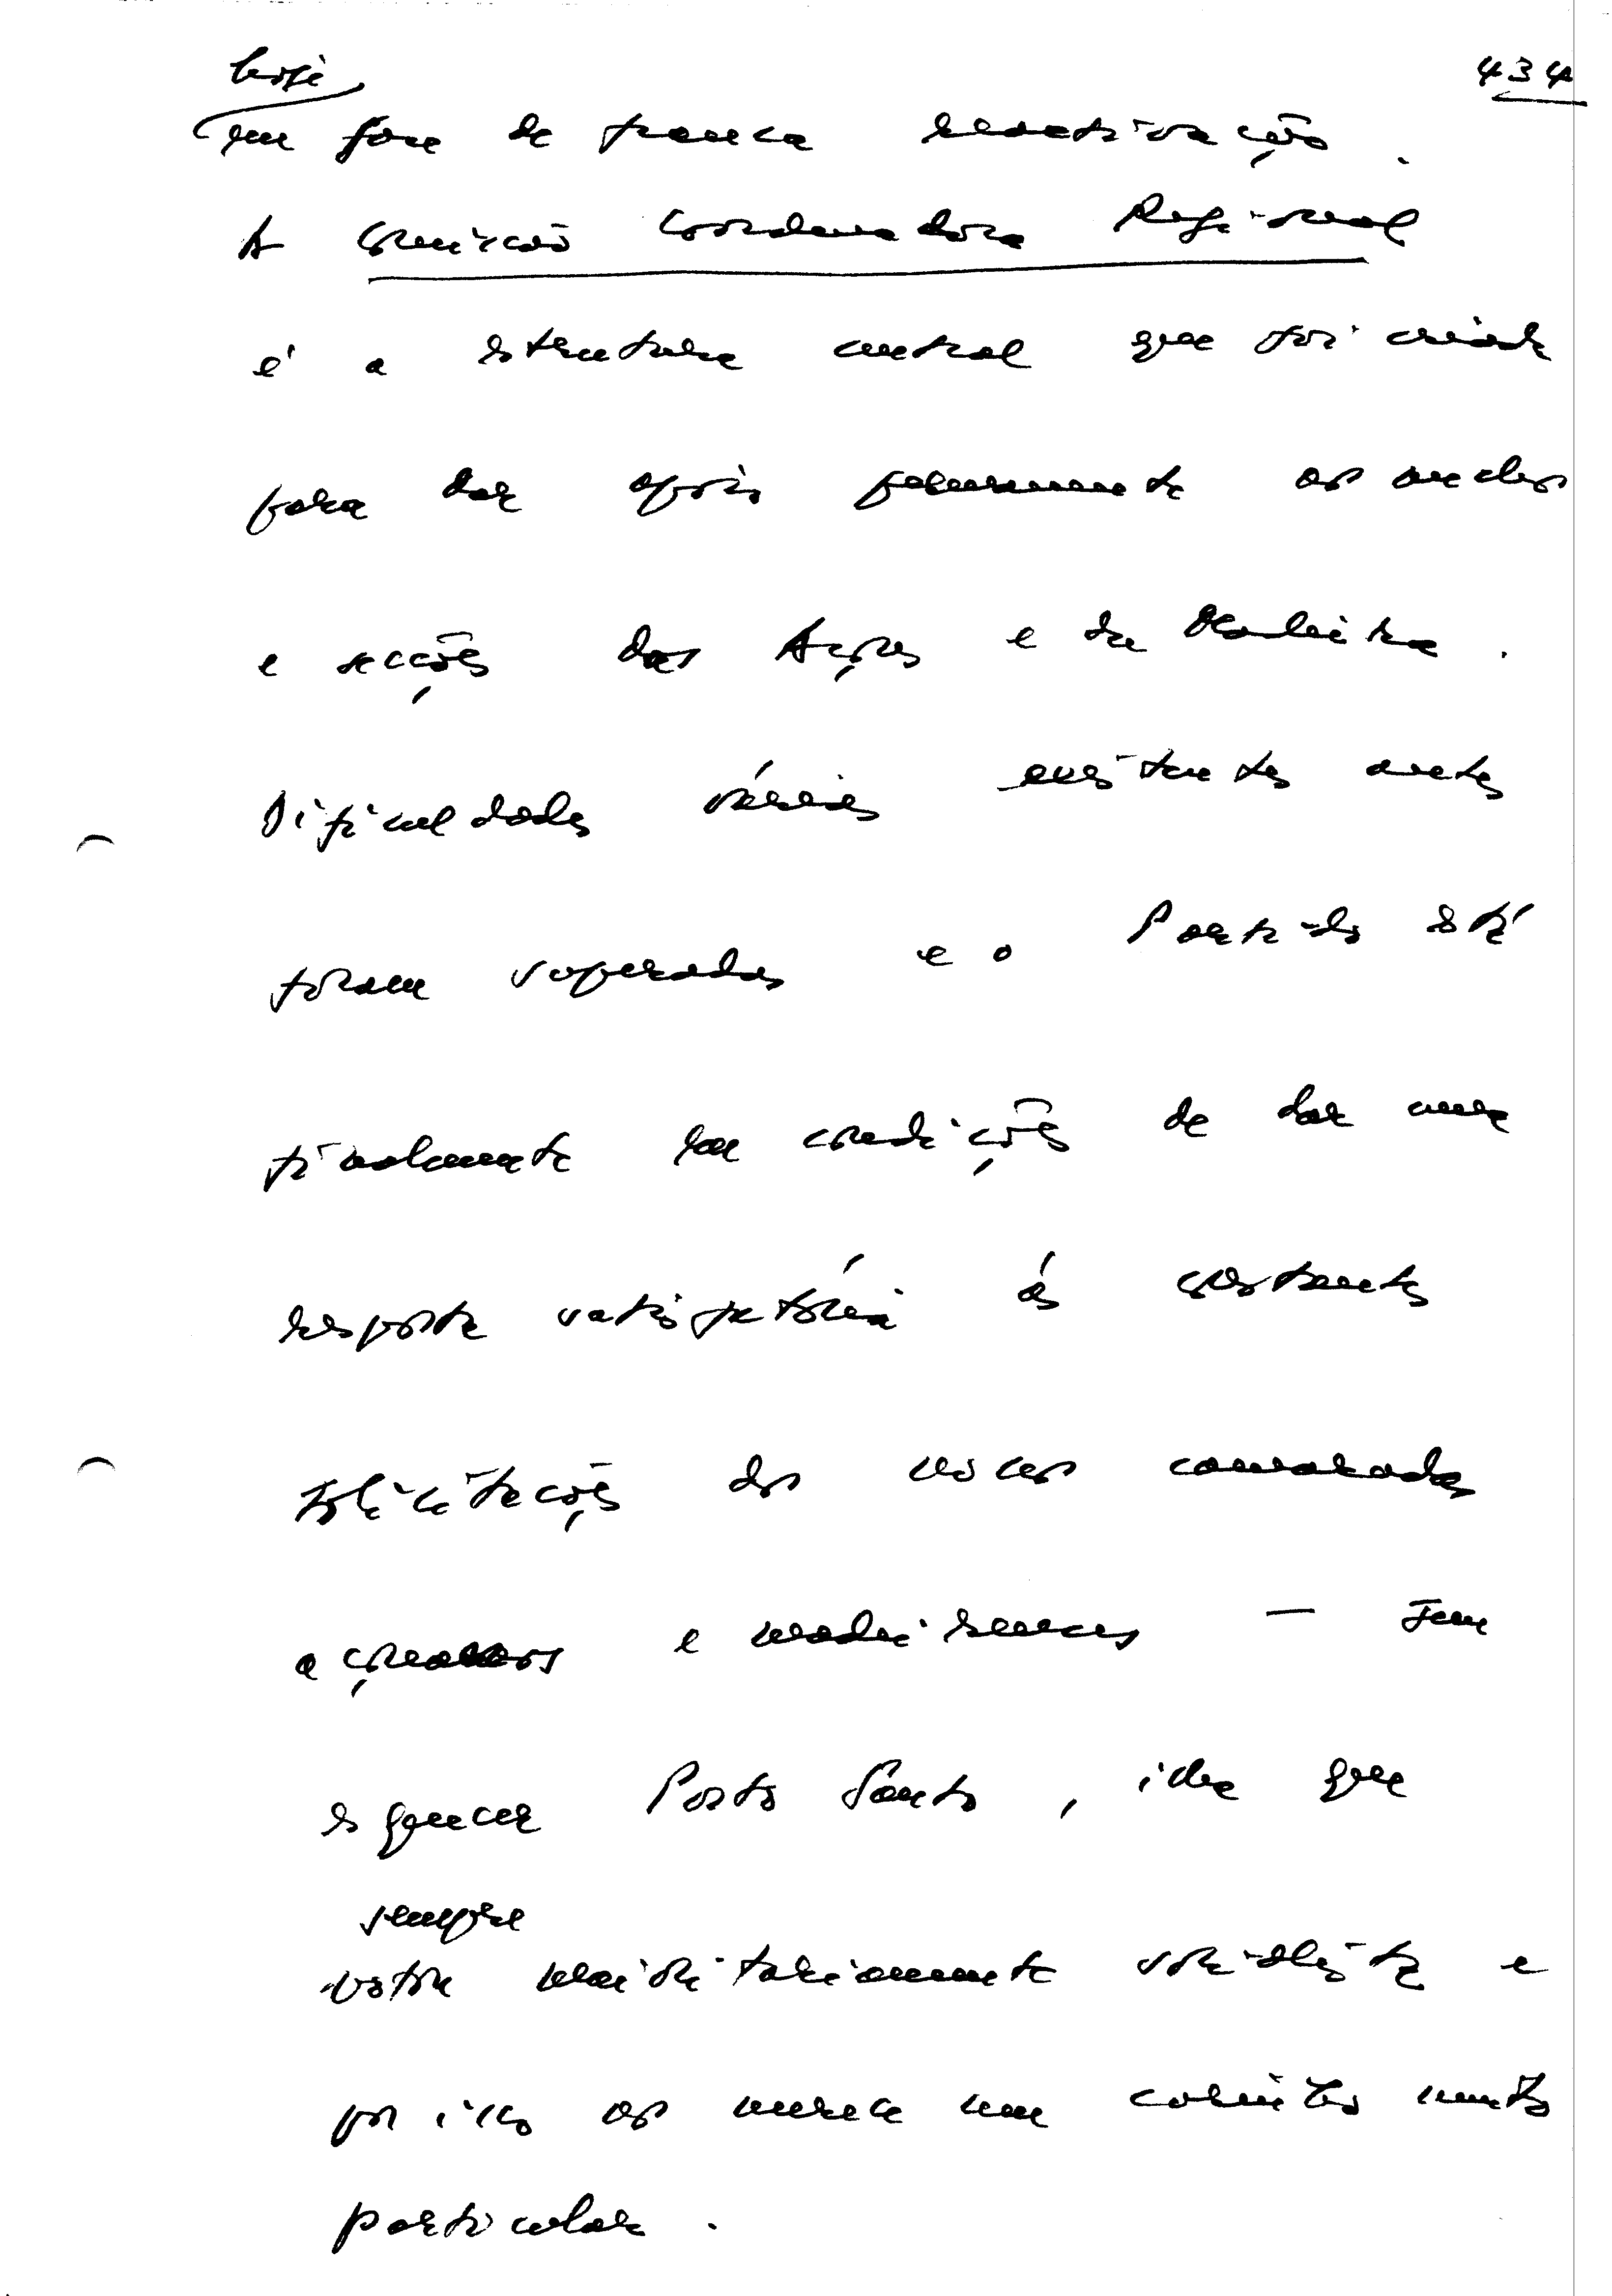 hoje
434
em fase de franca reactivação.
A Comissão Coordenadora Regional
é a estrutura central que foi criada
para dar apoio permanente aos nucleos
e secções dos Açores e da Madeira.
Dificuldades várias existentes antes
foram superadas e o Partido está
finalmente em condições de dar uma
resposta satisfatória ás constantes
solicitações dos nossos camaradas
açoreanos e madeirenses — sem
esquecer Porto Santo, ilha que
sempre
votou maioritariamente socialista e
por isso nos merece um carinho muito
particular.